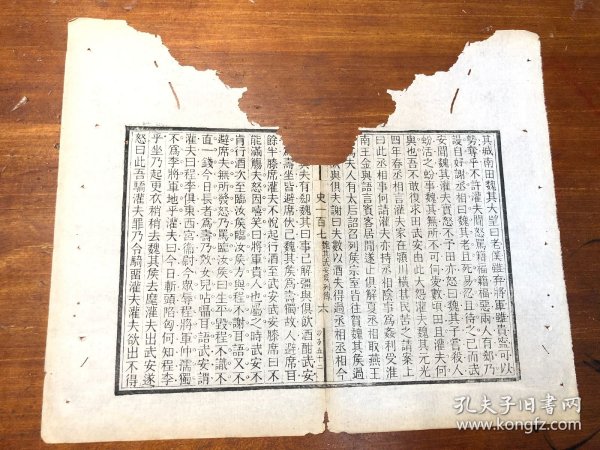 其城南田魏其大望曰老僕雖棄將軍雖貴寧可以
勢奪乎不許灌夫聞怒罵籍福籍福惡兩人有郄乃
謾自好謝丞相曰魏其老且死易忍且待之已而武
安聞魏其灌夫實怒不予田亦怒曰魏其子嘗殺人
蚡活之蚡事魏其無所不可何愛數頃田且灌夫何
與也吾不敢復求田武安由此大怨灌夫魏其元光
四年春丞相言灌夫家在潁川橫甚民苦之請案上
曰此丞相事何請灌夫亦持丞相陰事為姦利受淮
南王金與語言賓客居間遂止俱解夏丞相取燕王
夫人有太后詔召列矦宗室皆往賀魏其矦過
與俱夫謝曰夫數以酒失得過丞相丞相今
史一百七 魏其武安矦列傳 六
夫有郄魏其曰事已解彊與俱飲酒酣武安
壽坐皆避席伏已魏其矦為壽獨故人避席耳
餘半膝席灌夫不悅起行酒至武安武安膝席曰不
能滿觴夫怒因嘻笑曰將軍貴人也屬之時武安不
肯行酒次至臨汝矦臨汝矦方與程不識耳語又不
避席夫無所發怒乃罵臨汝矦曰生平毀程不識不
直一錢今日長者為壽乃效女兒呫囁耳語武安謂
灌夫曰程李俱東西宮衛尉今眾辱程將軍仲孺獨
不為李將軍地乎灌夫曰今日斬頭陷匈何知程李
乎坐乃起更衣稍稍去魏其矦去麾灌夫出武安遂
怒曰此吾驕灌夫罪乃令騎留灌夫灌夫欲出不得
孔夫子旧书网
kongfz.com